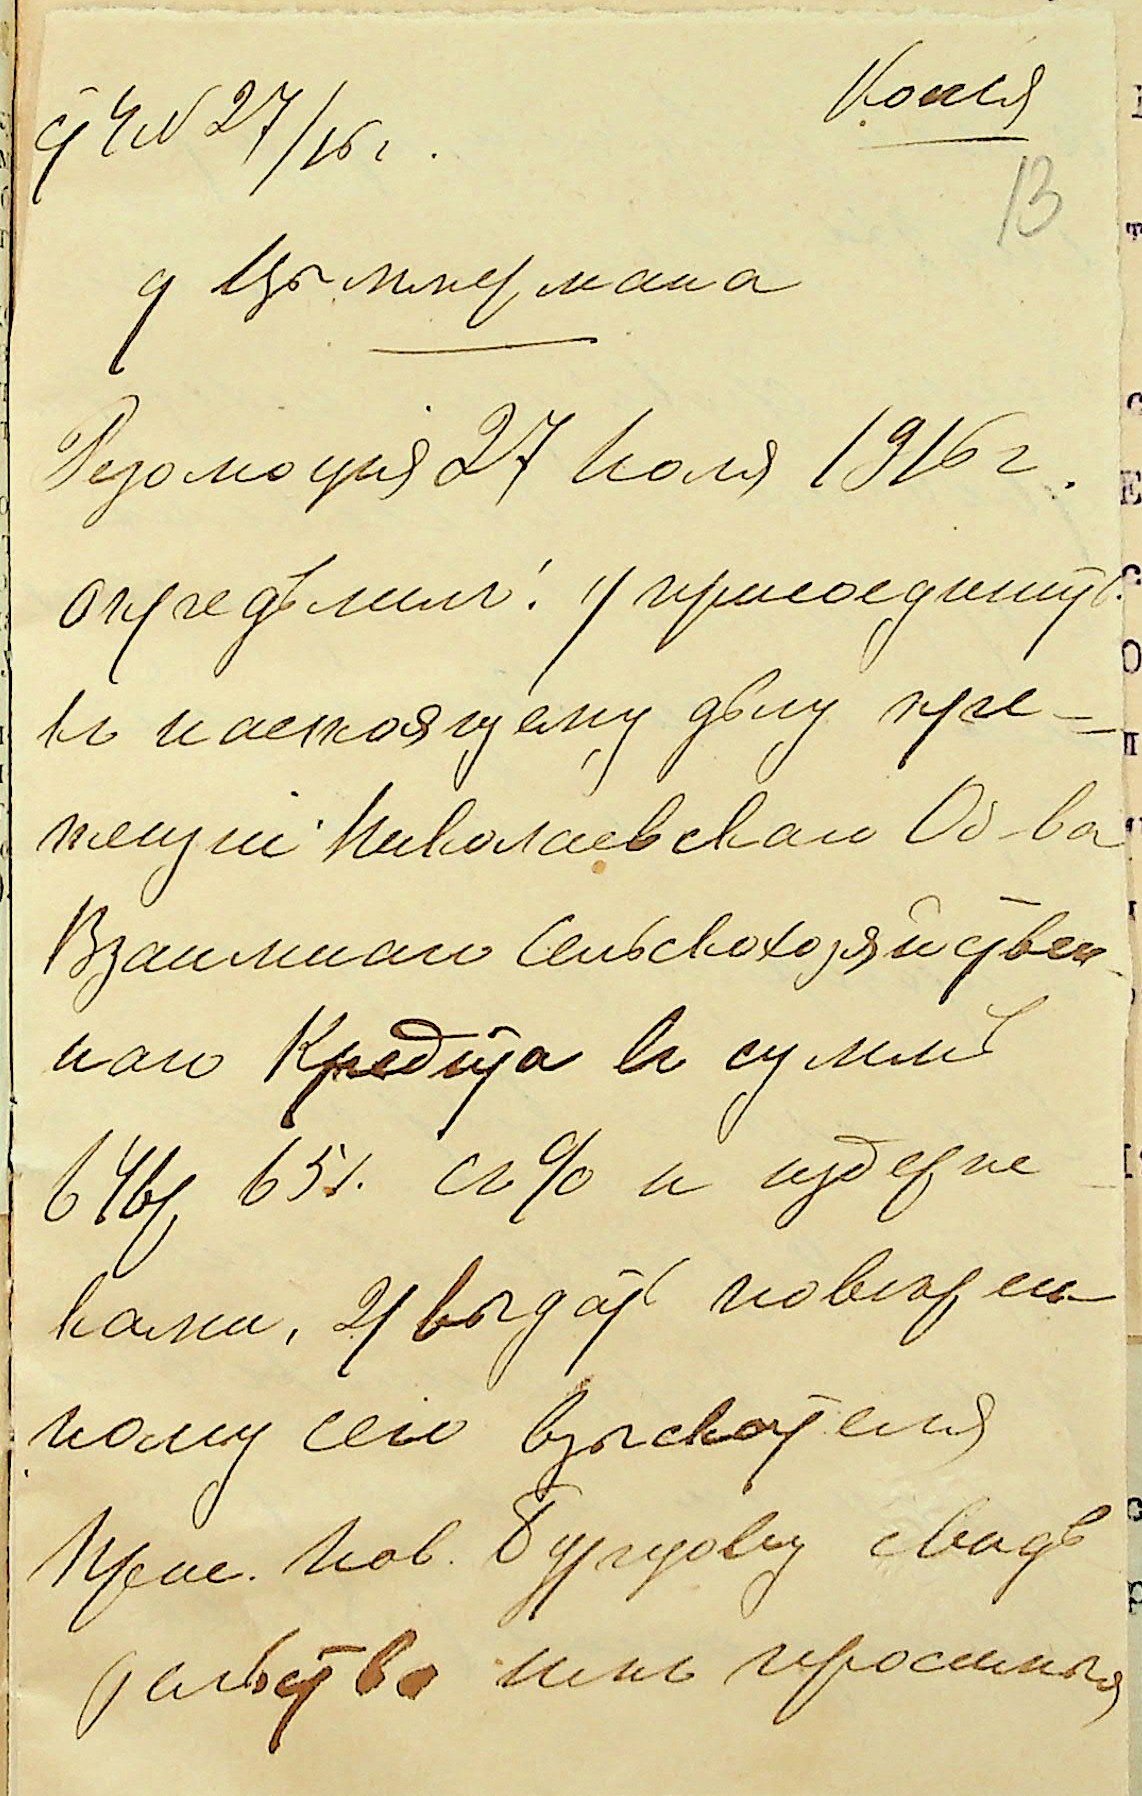 Копія
27/16 г.
13
д Цыммермана
Резолюція 27 Іюля 1916 г.
опредѣлилъ: 1/ присоединить
къ настоящему дѣлу пре-
тензіи Николаевскаго Об-ва
Взаимнаго Сельскохозяйствен
наго Кредита въ суммѣ
65 к. съ % и издерж
ками, 2/ выдать повѣрен-
ному сего взыскателя
Прис. Пов. свидѣ
тельства имъ просимыя